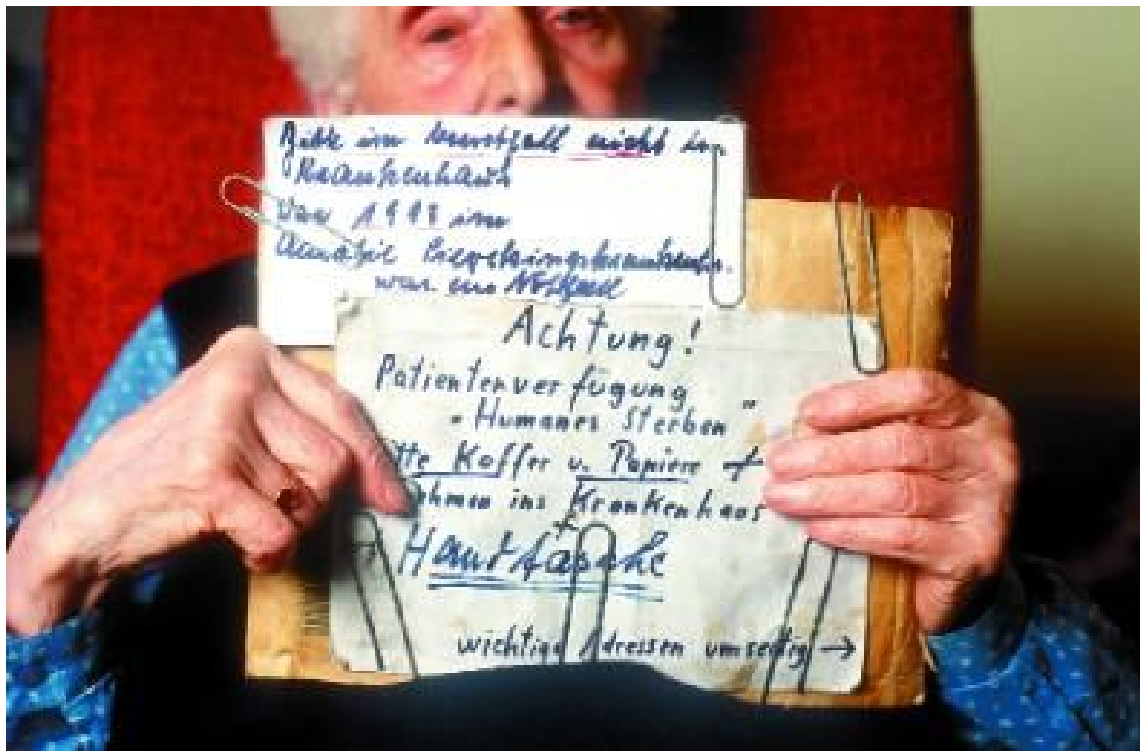 Bitte im Ernstfall nicht in
Krankenhaus
War 1998 im
war ein Notfall
Achtung!
Patientenverfügung
"Humanes Sterben"
Koffer u. Papiere +
ins Krankenhaus
+
Handtasche
wichtige Adressen umseitig →